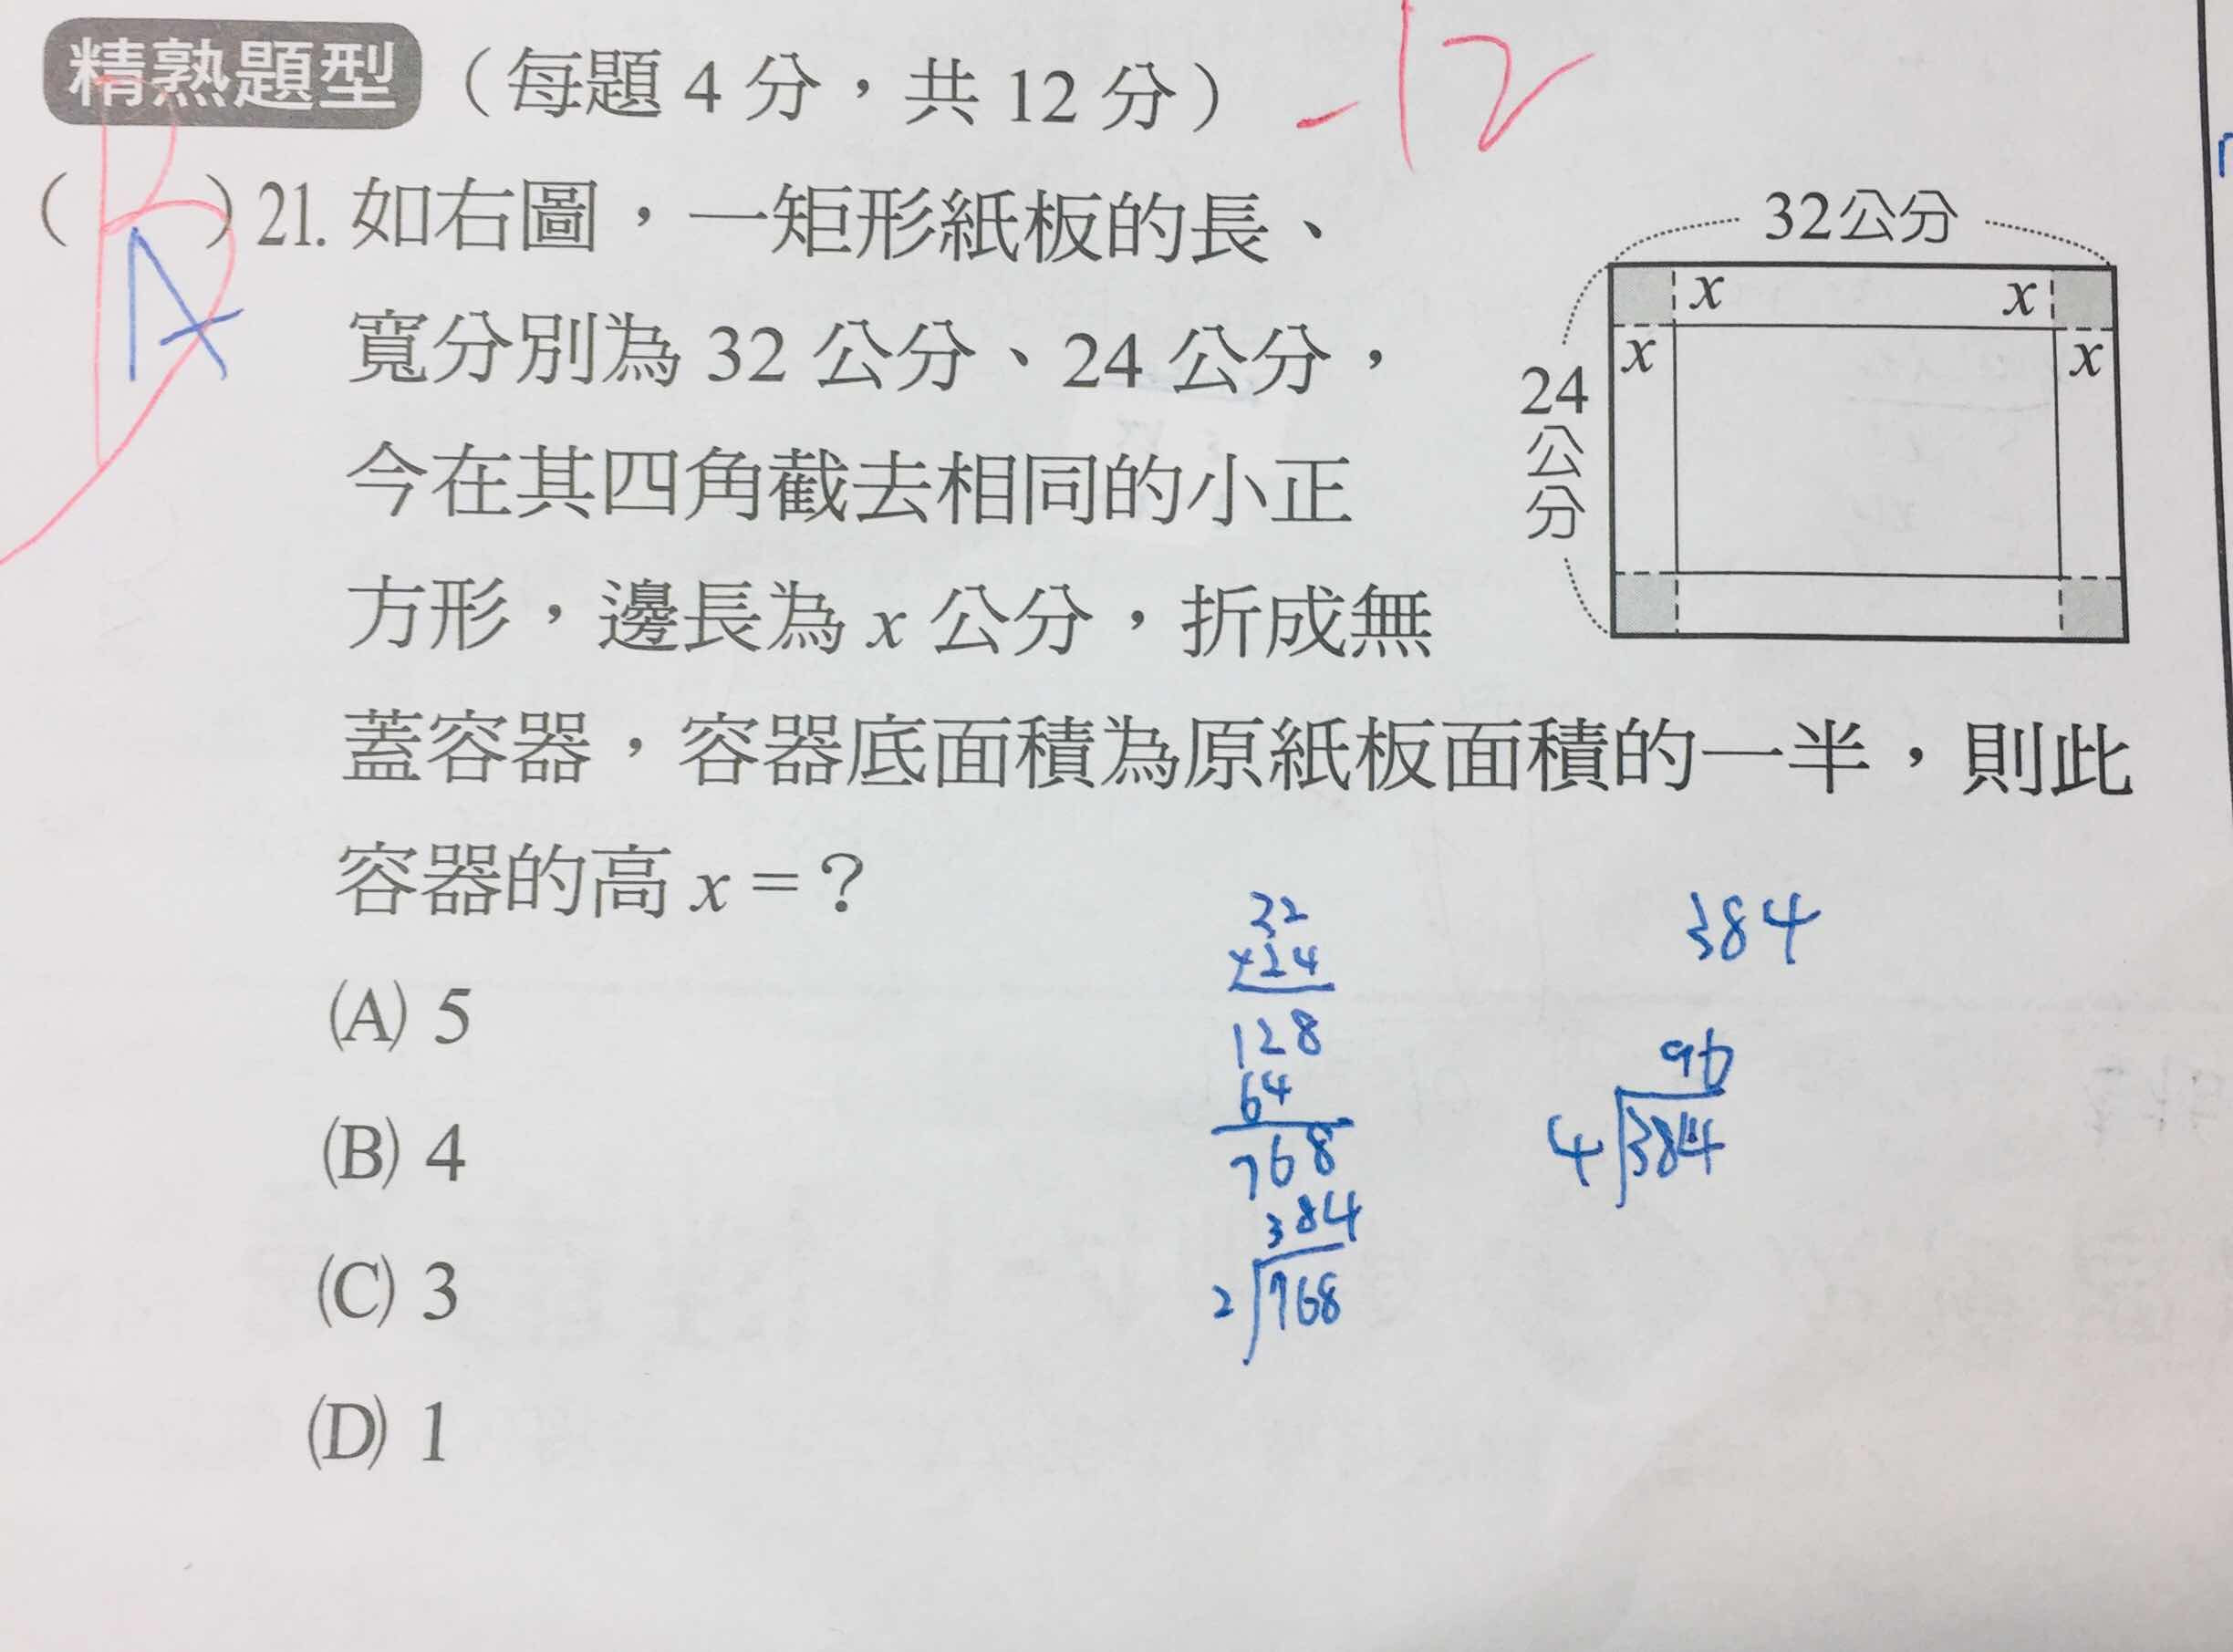 精熟題型（每題 4 分，共 12 分） -12
( B A ) 21. 如右圖，一矩形紙板的長、
寬分別為 32 公分、24 公分，
今在其四角截去相同的小正
方形，邊長為 x 公分，折成無
蓋容器，容器底面積為原紙板面積的一半，則此
容器的高 x =？
(A) 5
(B) 4
(C) 3
(D) 1
32公分
x x
x x
24
公
分
32
×24
128
64
768
384
2 768
384
96
4 384